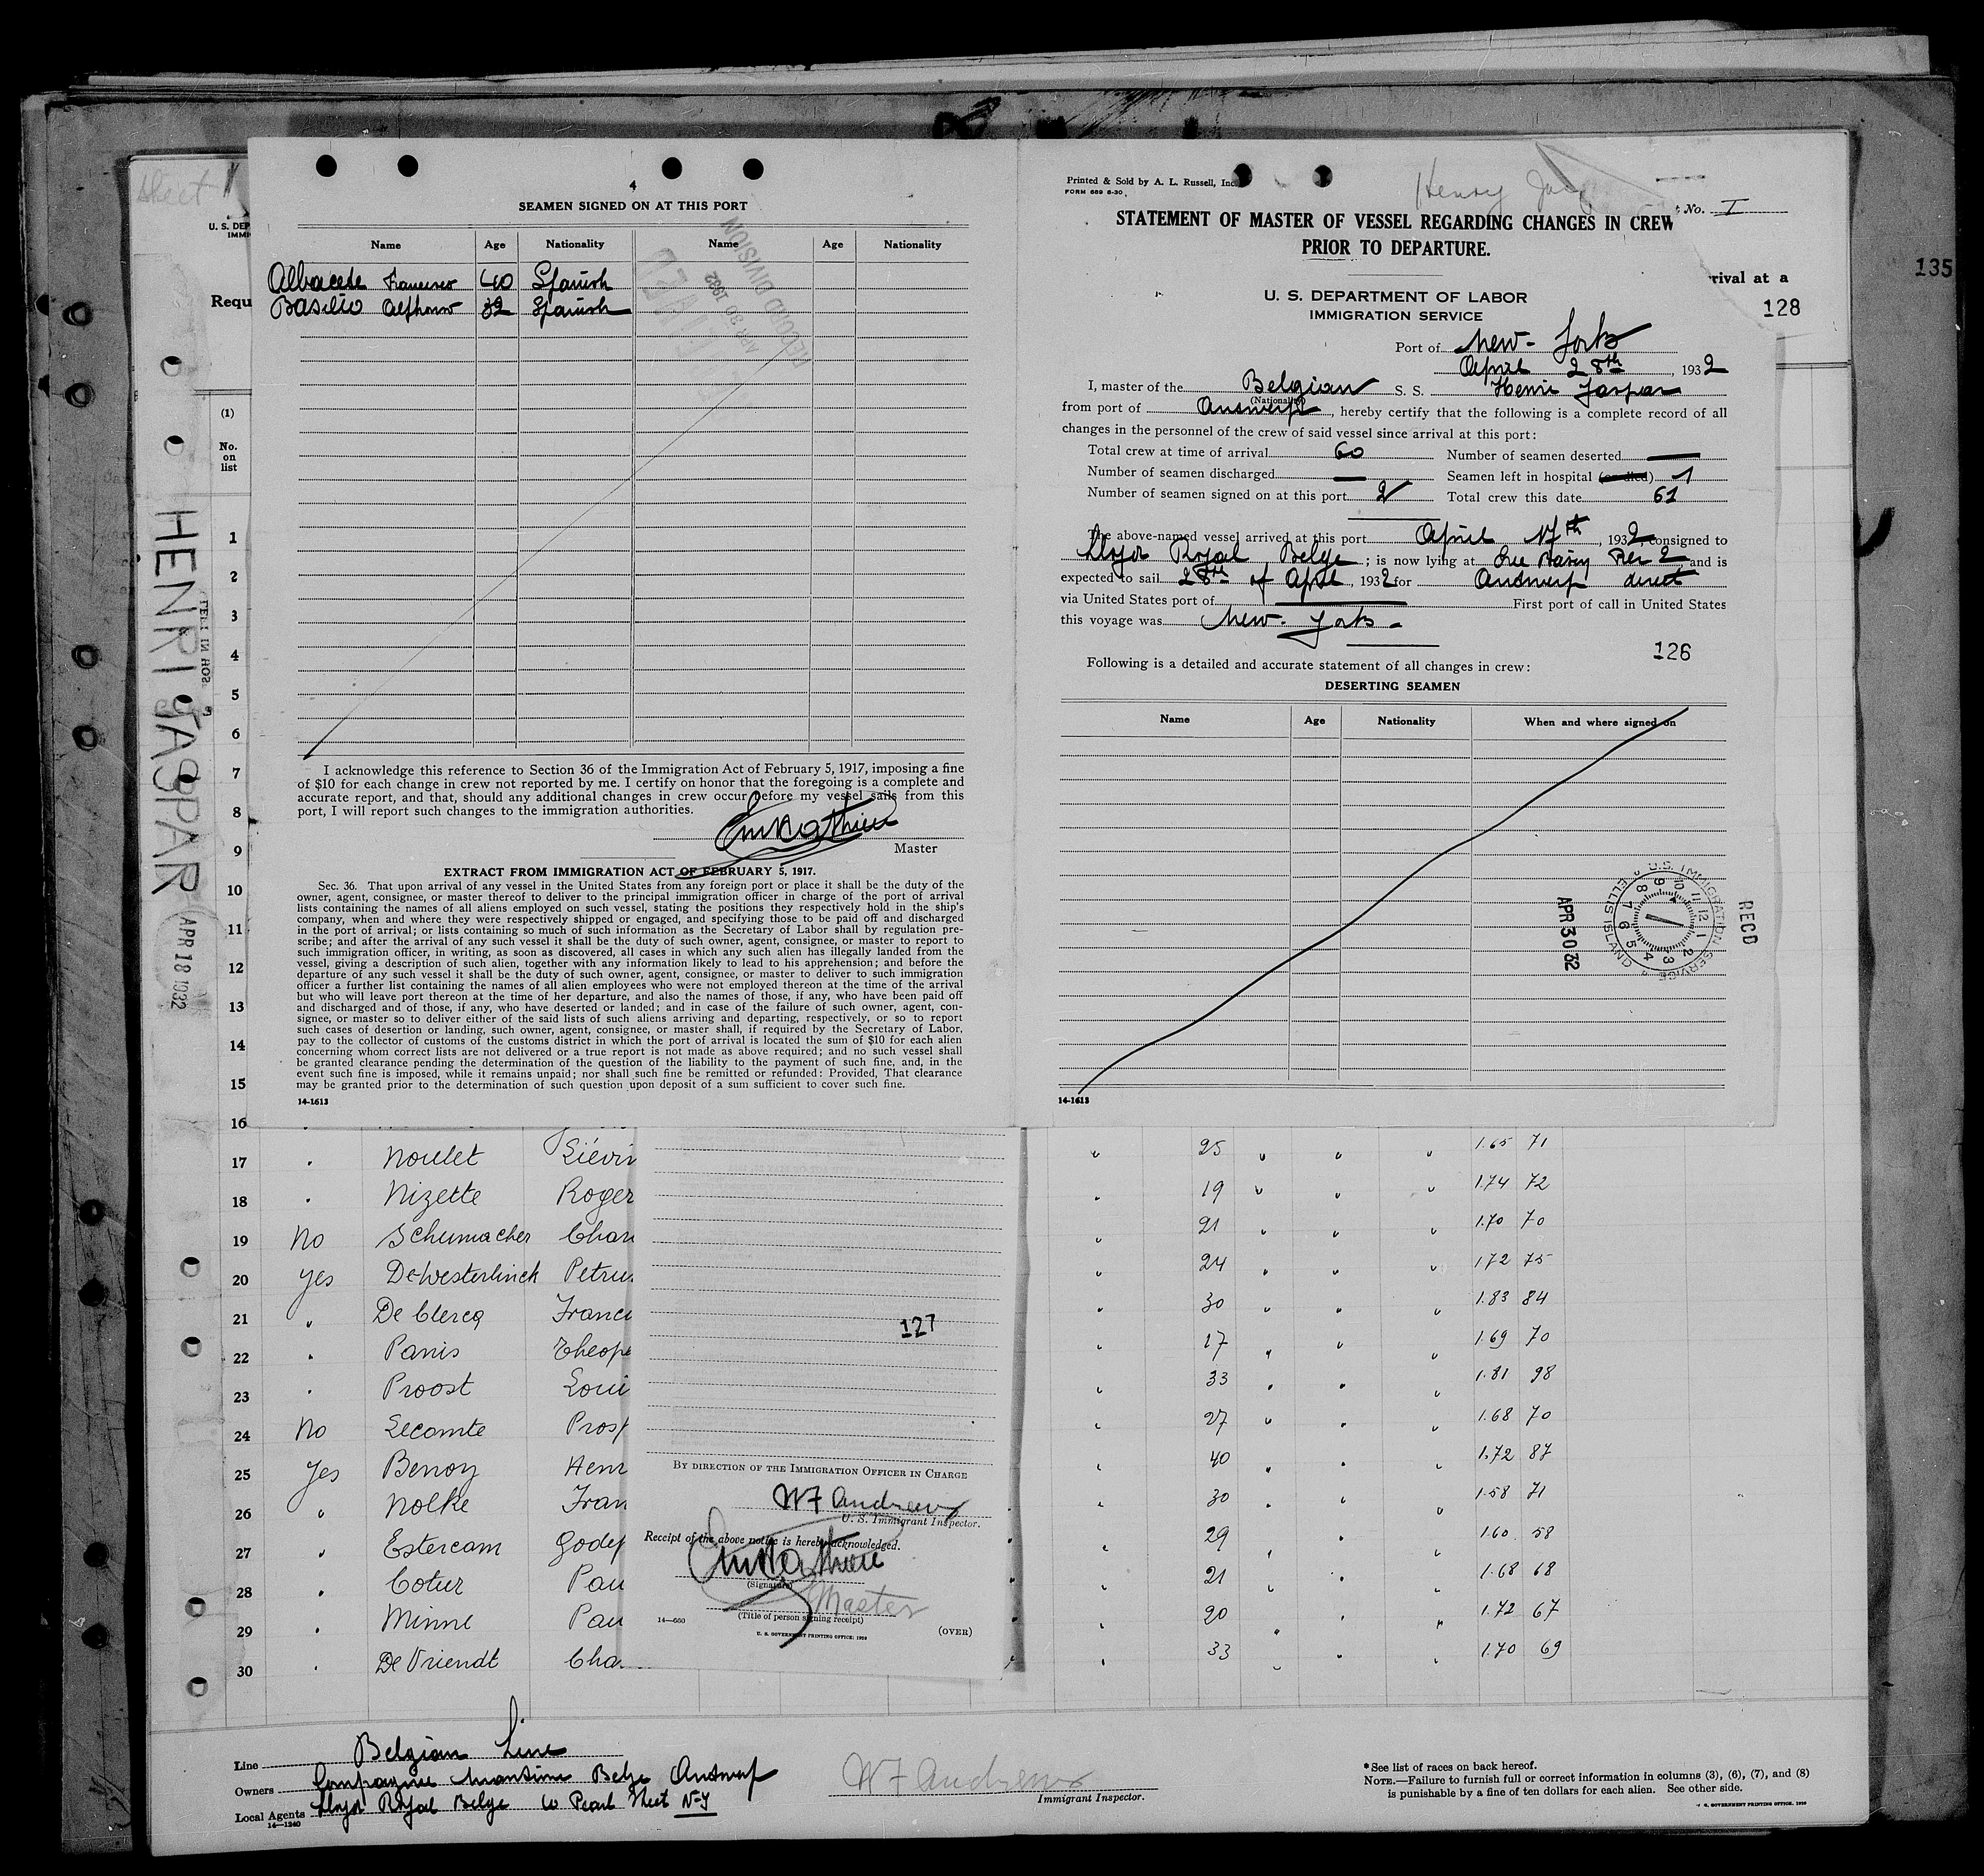 4
SEAMEN SIGNED ON AT THIS PORT
Name Age Nationality Name Age Nationality
Albacete Francisco 40 Spanish
Basilio Alphonso 32 Spanish
RECORD DIVISION
APR 30 1932
FILED
I acknowledge this reference to Section 36 of the Immigration Act of February 5, 1917, imposing a fine
of $10 for each change in crew not reported by me. I certify on honor that the foregoing is a complete and
accurate report, and that, should any additional changes in crew occur before my vessel sails from this
port, I will report such changes to the immigration authorities.
Master
EXTRACT FROM IMMIGRATION ACT OF FEBRUARY 5, 1917.
Sec. 36. That upon arrival of any vessel in the United States from any foreign port or place it shall be the duty of the
owner, agent, consignee, or master thereof to deliver to the principal immigration officer in charge of the port of arrival
lists containing the names of all aliens employed on such vessel, stating the positions they respectively hold in the ship's
company, when and where they were respectively shipped or engaged, and specifying those to be paid off and discharged
in the port of arrival; or lists containing so much of such information as the Secretary of Labor shall by regulation pre-
scribe; and after the arrival of any such vessel it shall be the duty of such owner, agent, consignee, or master to report to
such immigration officer, in writing, as soon as discovered, all cases in which any such alien has illegally landed from the
vessel, giving a description of such alien, together with any information likely to lead to his apprehension; and before the
departure of any such vessel it shall be the duty of such owner, agent, consignee, or master to deliver to such immigration
officer a further list containing the names of all alien employees who were not employed thereon at the time of the arrival
but who will leave port thereon at the time of her departure, and also the names of those, if any, who have been paid off
and discharged and of those, if any, who have deserted or landed; and in case of the failure of such owner, agent, con-
signee, or master so to deliver either of the said lists of such aliens arriving and departing, respectively, or so to report
such cases of desertion or landing, such owner, agent, consignee, or master shall, if required by the Secretary of Labor,
pay to the collector of customs of the customs district in which the port of arrival is located the sum of $10 for each alien
concerning whom correct lists are not delivered or a true report is not made as above required; and no such vessel shall
be granted clearance pending the determination of the question of the liability to the payment of such fine, and, in the
event such fine is imposed, while it remains unpaid; nor shall such fine be remitted or refunded: Provided, That clearance
may be granted prior to the determination of such question upon deposit of a sum sufficient to cover such fine.
14-1613
Printed & Sold by A. L. Russell, Inc
FORM 689 8-30
Henry Jas
No. I
STATEMENT OF MASTER OF VESSEL REGARDING CHANGES IN CREW
PRIOR TO DEPARTURE.
U. S. DEPARTMENT OF LABOR
IMMIGRATION SERVICE
rival at a
128
135
Port of New-York
April 28th, 1932
I, master of the Belgian S. S. Henri Jaspar
(Nationality)
from port of Antwerp, hereby certify that the following is a complete record of all
changes in the personnel of the crew of said vessel since arrival at this port:
Total crew at time of arrival 60 Number of seamen deserted —
Number of seamen discharged — Seamen left in hospital (or died) 1
Number of seamen signed on at this port 2 Total crew this date 61
The above-named vessel arrived at this port April 17th, 1932, consigned to
Lloyd Royal Belge; is now lying at Erie Basin Pier 2 and is
expected to sail 28th of April, 1932 for Antwerp direct
via United States port of First port of call in United States
this voyage was New-York -
126
Following is a detailed and accurate statement of all changes in crew:
DESERTING SEAMEN
Name Age Nationality When and where signed on
RECD
APR 30 32
U.S. IMMIGRATION SERVICE
ELLIS ISLAND
14-1613
Sheet
U. S. DEP
IMMI
Requ
(1)
No.
on
list
HENRI JASPAR
APR 18 1932
1
2
3
4
5
6
7
8
9
10
11
12
13
14
15
16
17 Noulet Liévin 25 1.65 71
18 Nizette Roger 19 1.74 72
19 No Schumacher Char 21 1.70 70
20 Yes DeWesterlinck Petrus 24 1.72 75
21 " De Clercq Franci 30 1.83 84
22 Panis Theop 17 1.69 70
23 Proost Loui 33 1.81 98
24 No Lecomte Prosp 27 1.68 70
25 Yes Benoy Henr 40 1.72 87
26 " Nolke Fran 30 1.58 71
27 " Estercam Godef 29 1.60 58
28 Cotur Pau 21 1.68 68
29 Minne Pau 20 1.72 67
30 De Vriendt Cha 33 1.70 69
127
BY DIRECTION OF THE IMMIGRATION OFFICER IN CHARGE
W F Andrews
U. S. Immigrant Inspector.
Receipt of the above notice is hereby acknowledged.
(Signature)
Master
(Title of person signing receipt)
14—660
U. S. GOVERNMENT PRINTING OFFICE: 1929
(OVER)
Line Belgian Line
Owners Compagnie Maritime Belge Antwerp
Local Agents Lloyd Royal Belge 60 Pearl Street N-Y
14-1240
W F Andrews
Immigrant Inspector.
*See list of races on back hereof.
NOTE.—Failure to furnish full or correct information in columns (3), (6), (7), and (8)
is punishable by a fine of ten dollars for each alien. See other side.
U. S. GOVERNMENT PRINTING OFFICE: 1930